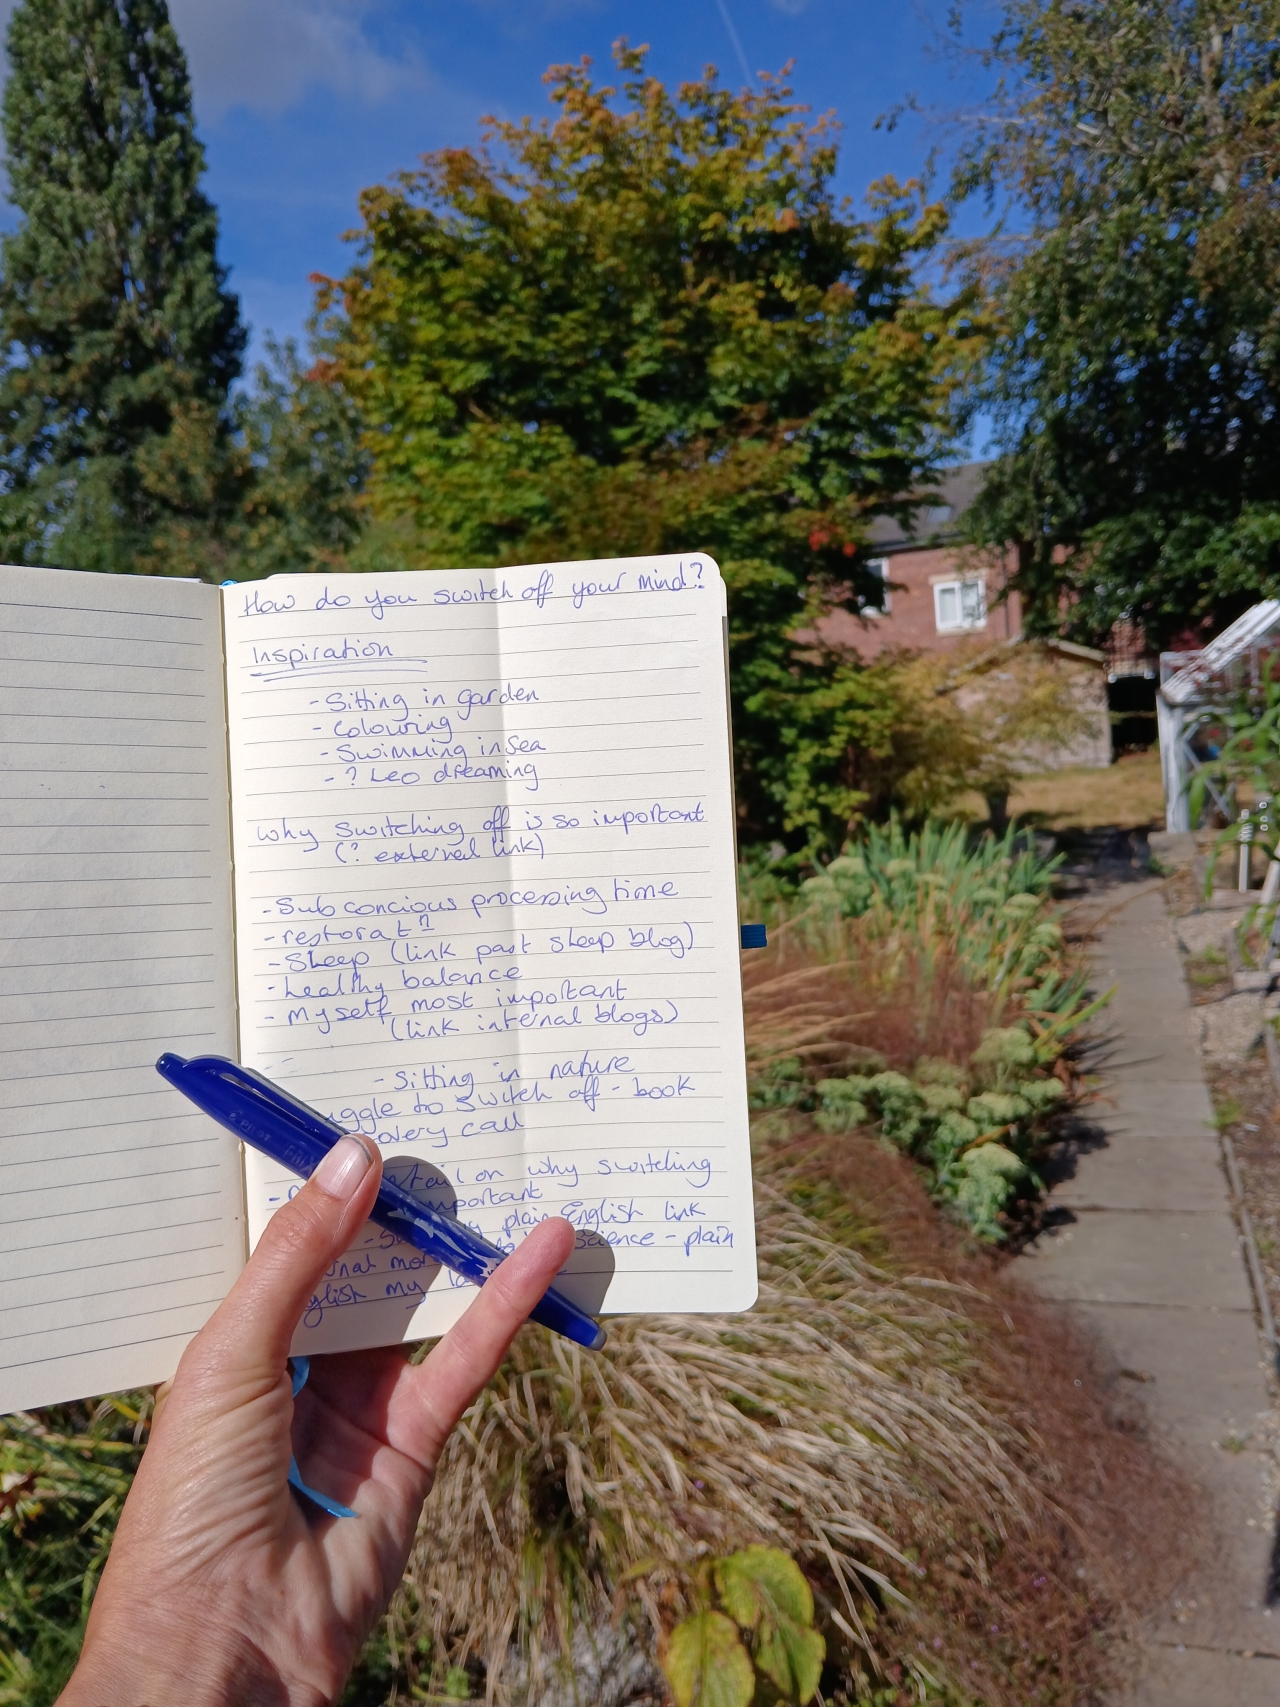 How do you switch off your mind?
Inspiration
- Sitting in garden
- Colouring
- Swimming in Sea
- ? Leo dreaming
Why switching off is so important
(? external link)
- Sub concious processing time
- restorat
- Sleep (link past sleep blog)
- healthy balance
- Myself most important
(link internal blogs)
-
- Sitting in nature
uggle to switch off - book
overy call
on why switching
important
plain English link
Science - plain
my